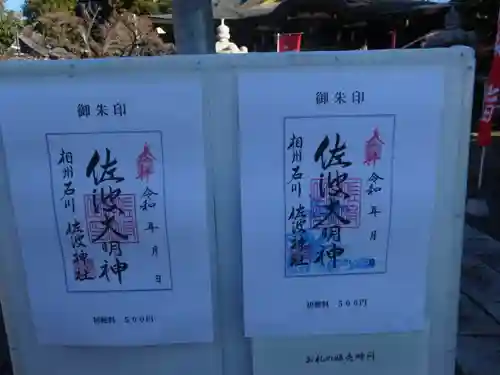 御朱印
奉拝
令和 年 月 日
佐波大明神
相州石川 佐波神社
初穂料 500円
御朱印
奉拝
令和 年 月 日
佐波大明神
相州石川 佐波神社
初穂料 500円